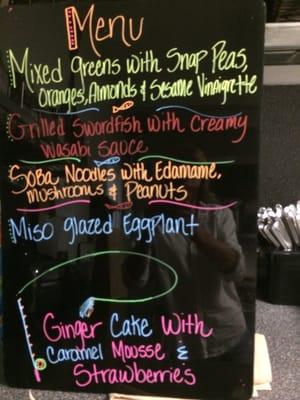 Menu
Mixed greens with Snap Peas,
Oranges, Almonds & Sesame Vinaigrette
Grilled Swordfish with Creamy
Wasabi Sauce
Soba Noodles with Edamame,
Mushrooms & Peanuts
Miso glazed Eggplant
Ginger Cake With
Caramel Mousse &
Strawberries